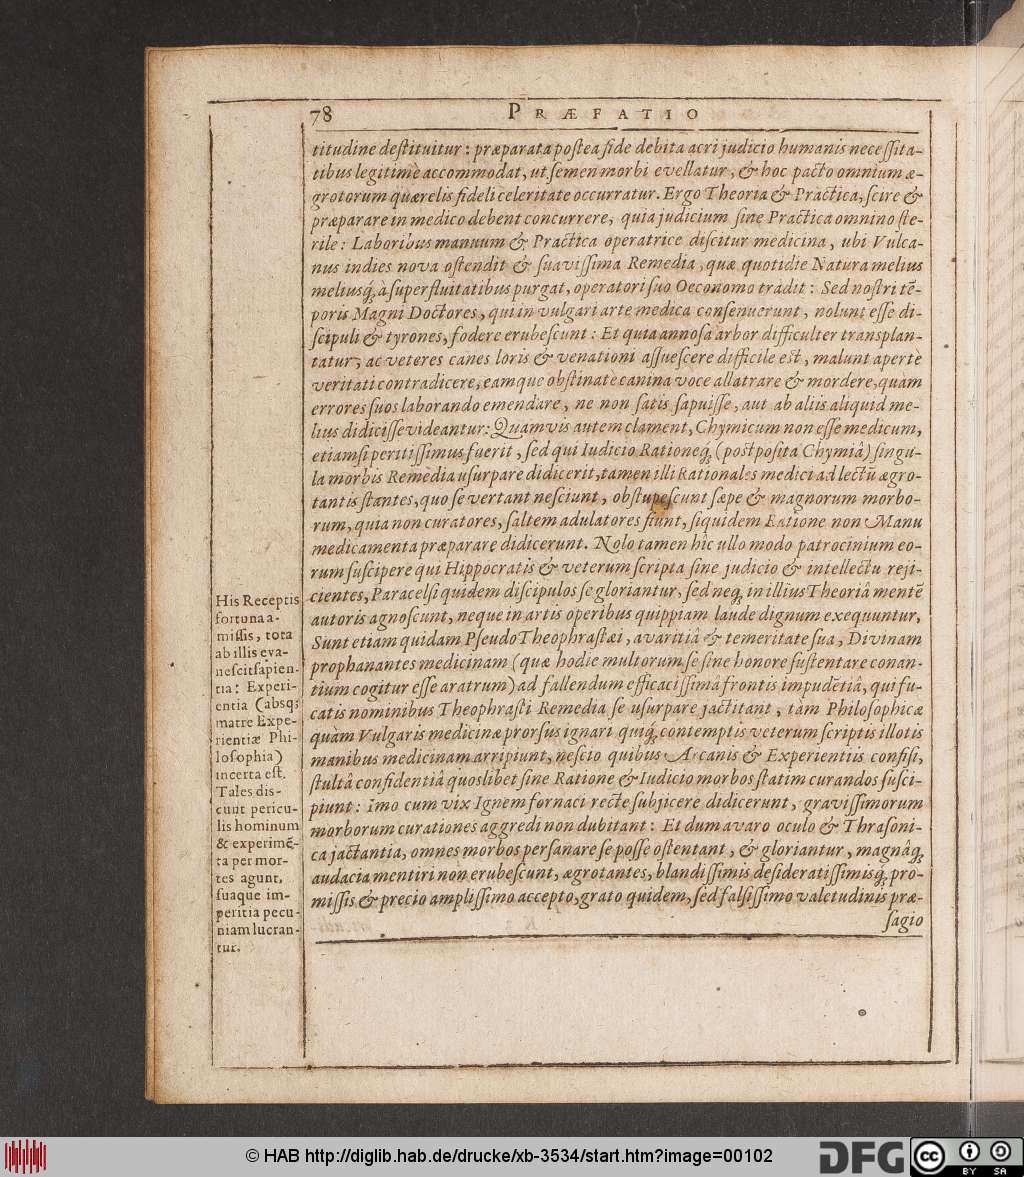 78 PRÆFATIO
titudine destituitur: præparata postea fide debita acri judicio humanis necessita-
tibus legitimè accommodat, ut semen morbi evellatur, & hoc pacto omnium æ-
grotorum quærelis fideli celeritate occurratur. Ergo Theoria & Practica, scire &
præparare in medico debent concurrere, quia judicium sine Practica omnino ste-
rile: Laboribus manuum & Practica operatrice discitur medicina, ubi Vulca-
nus indies nova ostendit & suavissima Remedia, quæ quotidie Natura melius
meliusq́; à superfluitatibus purgat, operatori suo Oeconomo tradit: Sed nostri tē-
poris Magni Doctores, qui in vulgari arte medica consenuerunt, nolunt esse di-
scipuli & tyrones, fodere erubescunt: Et quia annosa arbor difficulter transplan-
tatur, ac veteres canes loris & venationi assuescere difficile est, malunt aperte
veritati contradicere, eamque obstinate canina voce allatrare & mordere, quàm
errores suos laborando emendare, ne non satis sapuisse, aut ab aliis aliquid me-
lius didicisse videantur: Quamvis autem clament, Chymicum non esse medicum,
etiamsi peritissimus fuerit, sed qui Iudicio Rationeq́; (postposita Chymiâ) singu-
la morbis Remedia usurpare didicerit, tamen illi Rationales medici ad lectū ægro-
tantis stantes, quo se vertant nesciunt, obstupescunt sæpe & magnorum morbo-
rum, quia non curatores, saltem adulatores fiunt, siquidem Ratione non Manu
medicamenta præparare didicerunt. Nolo tamen hîc ullo modo patrocinium eo-
rum suscipere qui Hippocratis & veterum scripta sine judicio & intellectu reji-
cientes, Paracelsi quidem discipulos se gloriantur, sed neq́; in illius Theoriâ mentē
autoris agnoscunt, neque in artis operibus quippiam laude dignum exequuntur,
Sunt etiam quidam PseudoTheophrastæi, avaritiâ & temeritate sua, Divinam
prophanantes medicinam (quæ hodie multorum se sine honore sustentare conan-
tium cogitur esse aratrum) ad fallendum efficacissimâ frontis impudētiâ, qui fu-
catis nominibus Theophrasti Remedia se usurpare jactitant, tàm Philosophicæ
quàm Vulgaris medicinæ prorsus ignari quiq́; contemptis veterum scriptis illotis
manibus medicinam arripiunt, nescio quibus Arcanis & Experientiis confisi,
stultâ confidentiâ quoslibet sine Ratione & Iudicio morbos statim curandos susci-
piunt: Imo cum vix Ignem fornaci recte subjicere didicerunt, gravissimorum
morborum curationes aggredi non dubitant: Et dum avaro oculo & Thrasoni-
ca jactantia, omnes morbos persanare se posse ostentant, & gloriantur, magnâq́;
audacia mentiri non erubescunt, ægrotantes, blandissimis desideratissimisq́; pro-
missis & precio amplissimo accepto, grato quidem, sed falsissimo valetudinis præ-
sagio
His Receptis
fortuna a-
missis, tota
ab illis eva-
nescit sapien-
tia: Experi-
entia (absq;
matre Expe-
rientiæ Phi-
losophia)
incerta est.
Tales dis-
cunt pericu-
lis hominum
& experimē-
ta per mor-
tes agunt,
suaque im-
peritia pecu-
niam lucran-
tur.
© HAB http://diglib.hab.de/drucke/xb-3534/start.htm?image=00102
DFG
cc BY SA